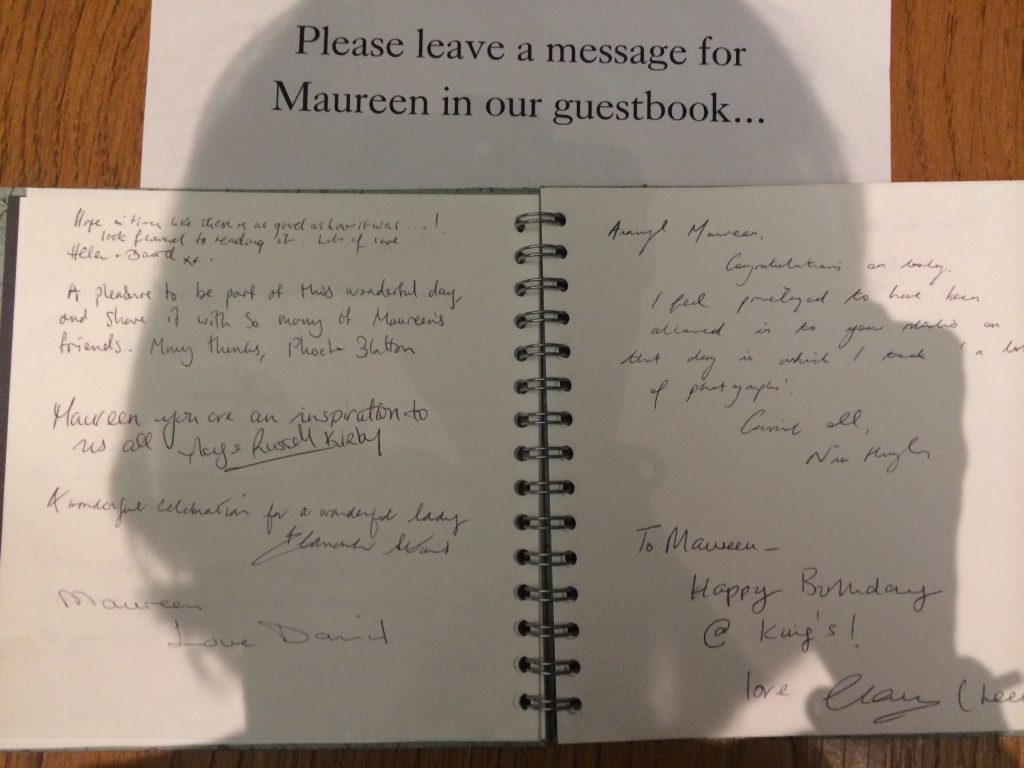 Please leave a message for
Maureen in our guestbook...
Hope in time like these is as good as how it was ....!
look forward to reading it. Lots of love
Helen + David xx.
A pleasure to be part of this wonderful day
and share it with so many of Maureen's
friends. Many thanks, Phoebe
Maureen you are an inspiration to
us all Russell Kirby
A wonderful celebration for a wonderful lady
Maureen
Love David
Maureen,
Congratulations on
I feel to have been
allowed in to your studio on
that day in which I took a
of photographs!
all,
To Maureen –
Happy Birthday
@ King's!
love